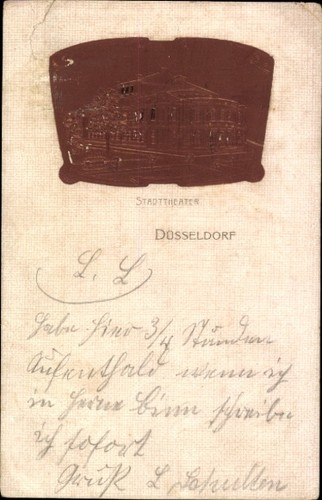 STADTTHEATER
DÜSSELDORF
L. L
Habe hier 3/4 Stunden
Aufenthald wenn ich
in Herne binn schreibe
ich sofort
Gruß L